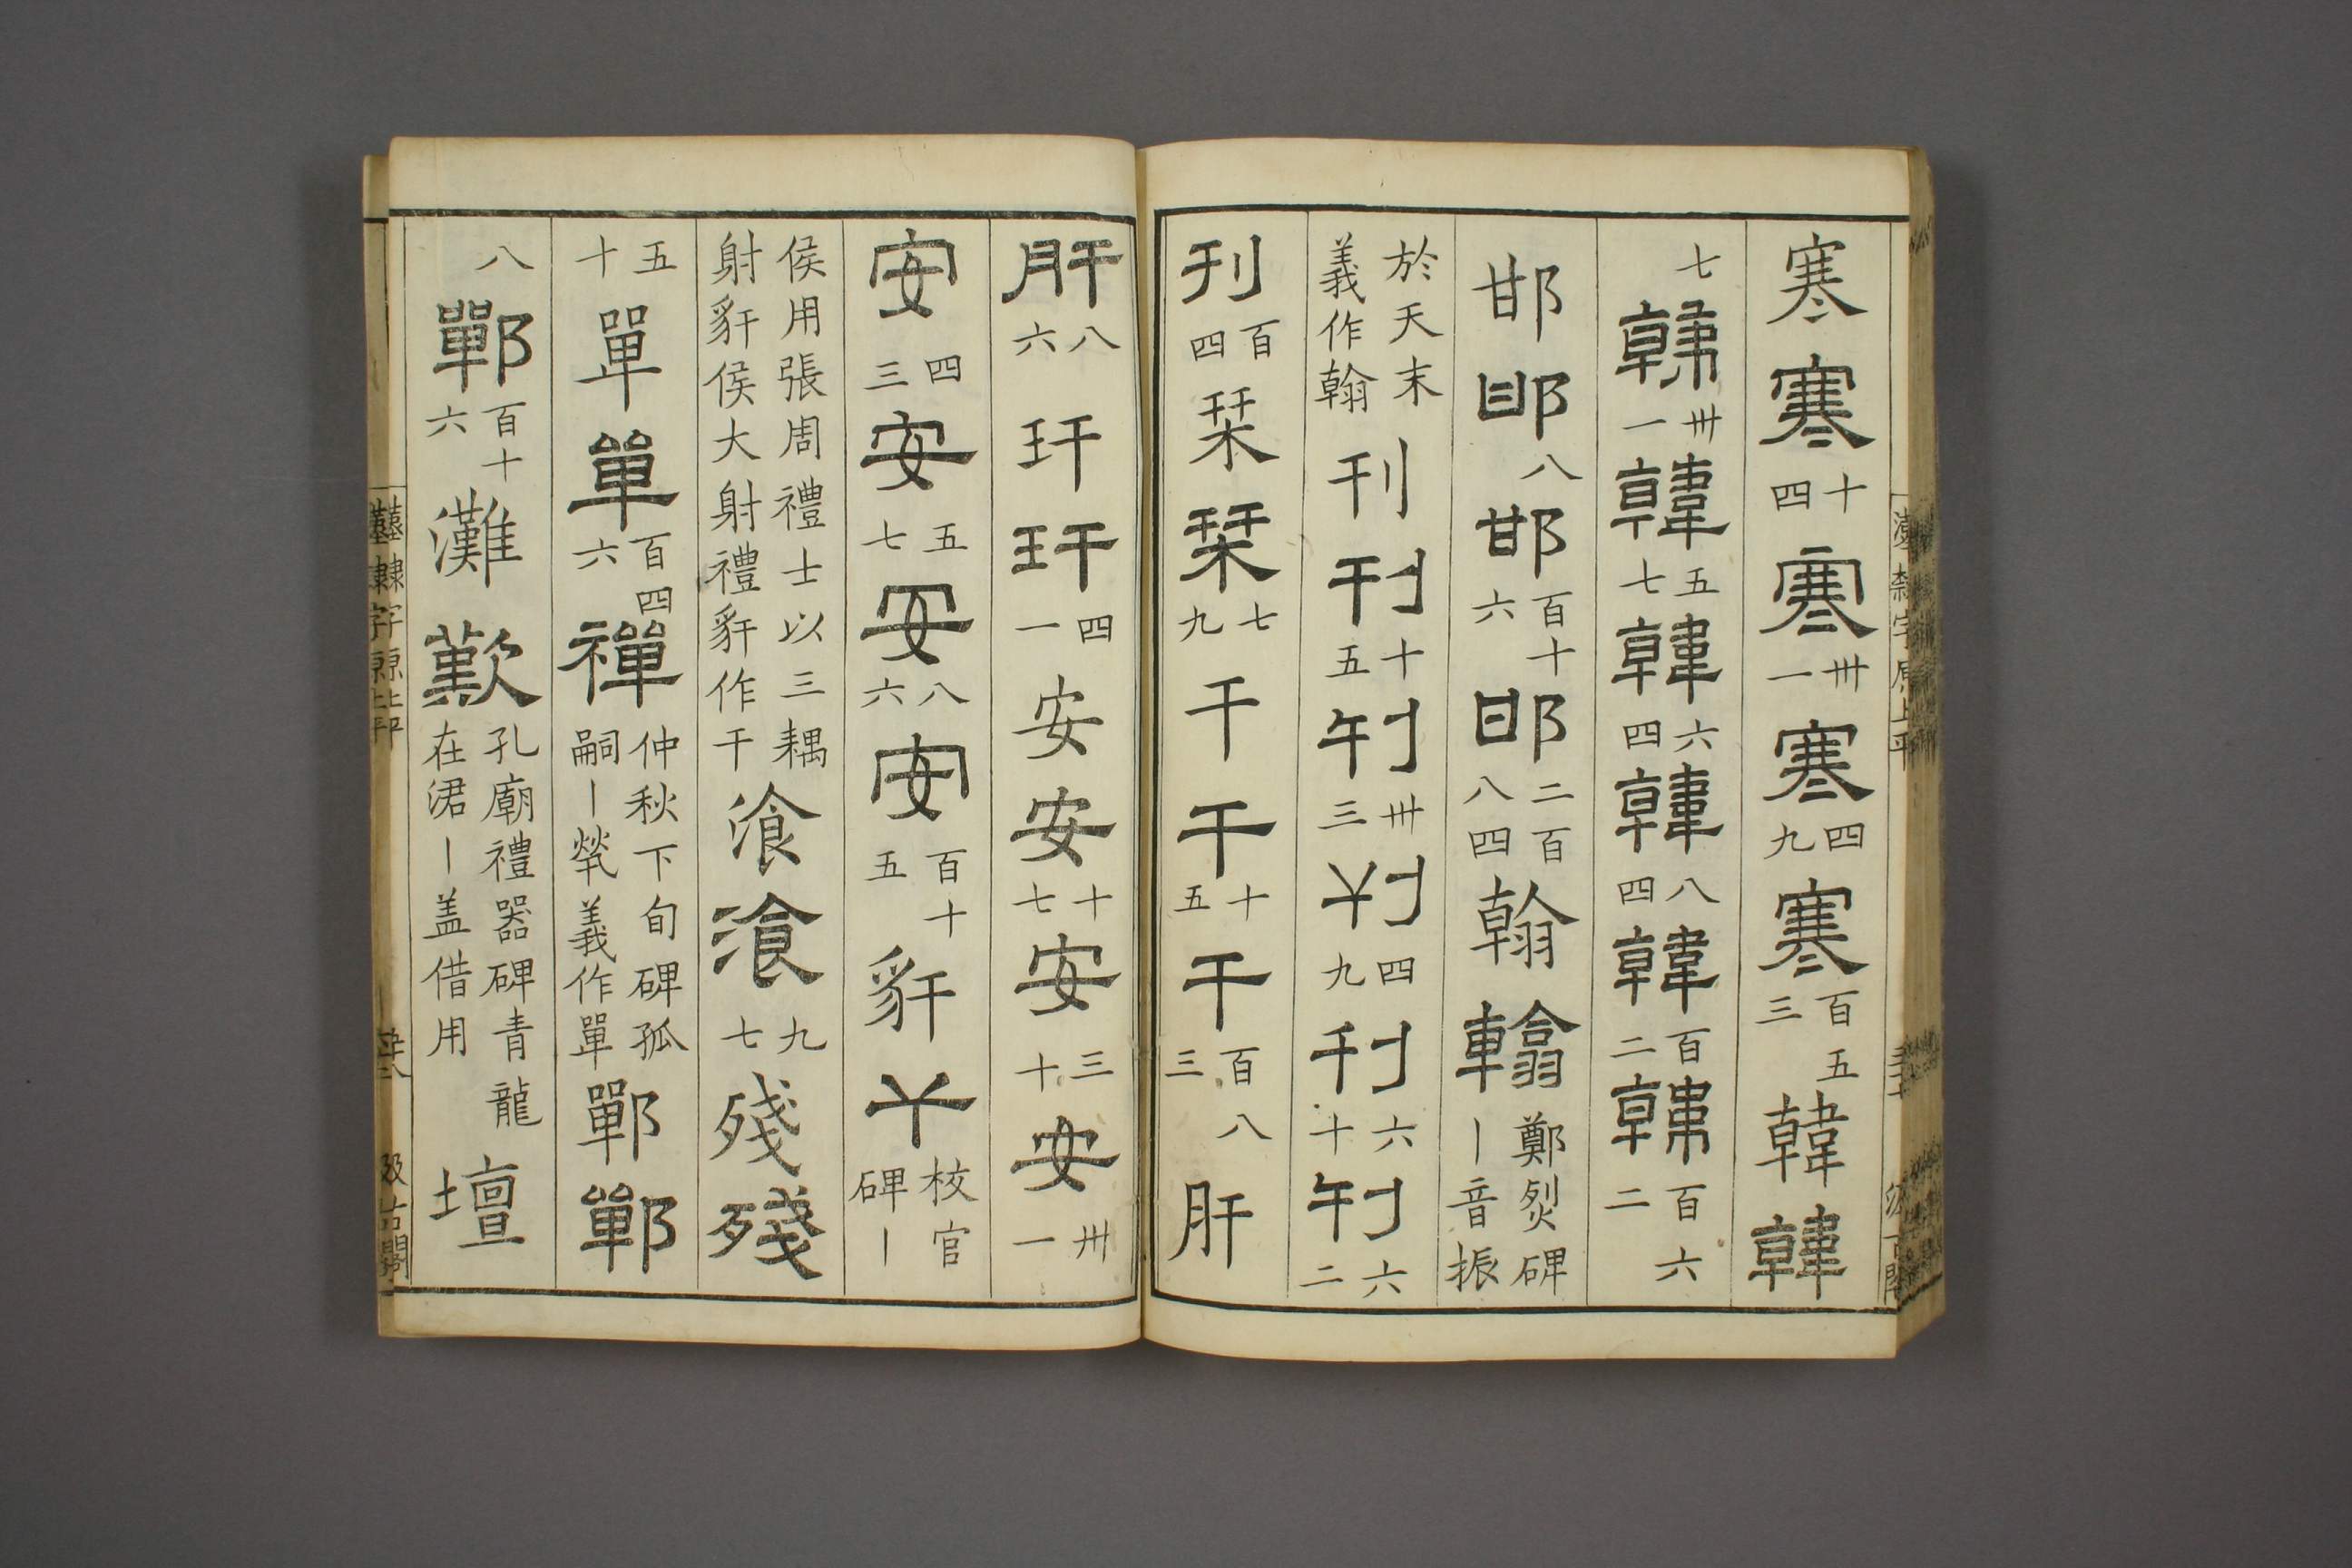 寒寒十四寒卌一寒四九寒百五三韓韓
七韓卌一韓五七韓六四韓八四韓百二韓百六二
邯邯八邯百十六邯二百八四翰翰鄭烈碑丨音振
於天末義作翰刊刊十五刊卌三刊四九刊六十刊六二
刊百四栞栞七九干干十五干百八三肝
肝八六玕玕四一安安十七安三十安卌一
安四三安五七安八六安百十五豻丫校官碑丨
侯用張周禮士以三耦射豻侯大射禮豻作干飡飡九七殘殘
五十單單百四六襌仲秋下旬碑孤嗣丨煢義作單鄲鄲
八鄲百十六灘歎孔廟禮器碑青龍在涒丨盖借用壇
漢隸字原上平
汲古閣